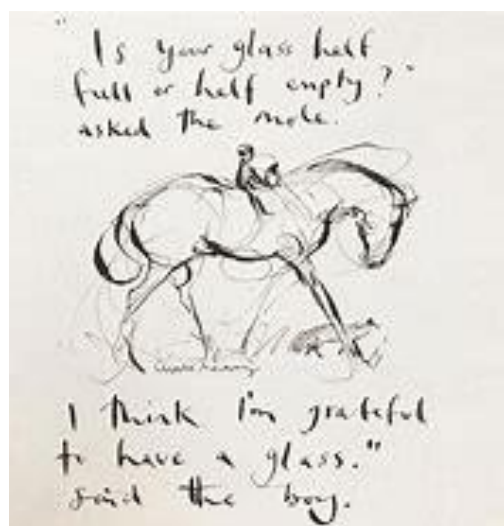 "Is your glass half
full or half empty?"
asked the mole.
I think I'm grateful
to have a glass."
said the boy.